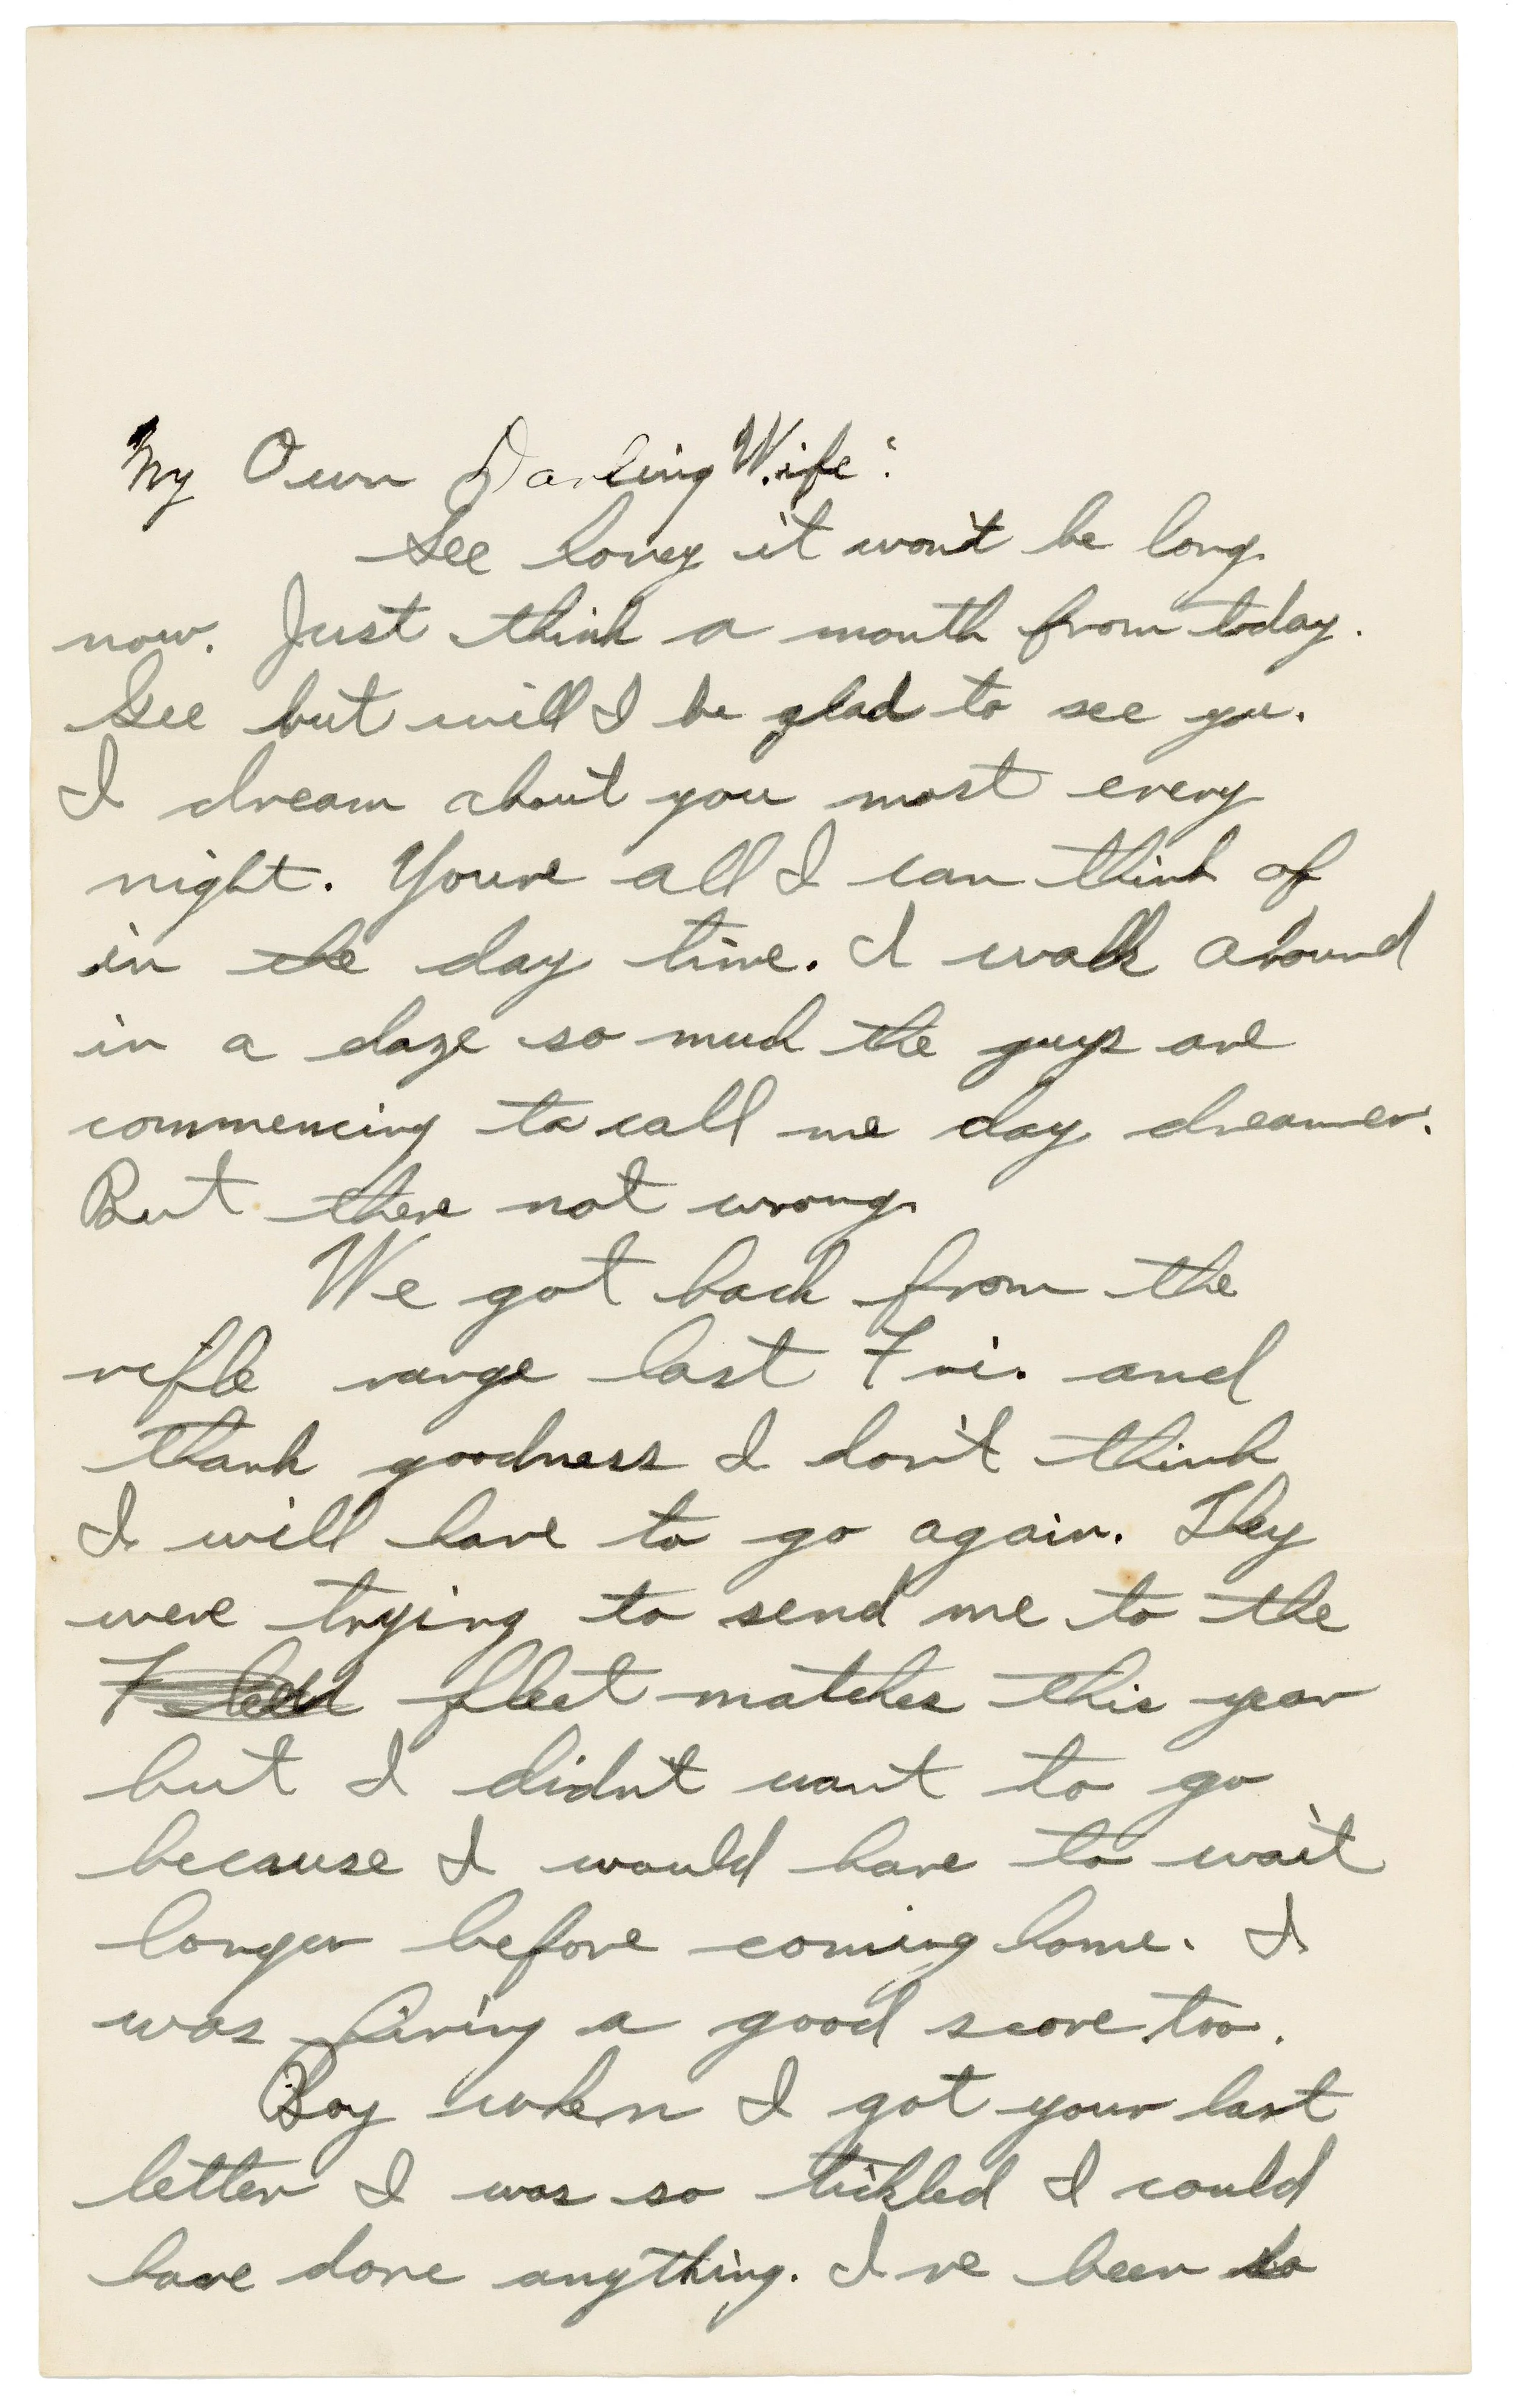 My Own Darling Wife:
Gee honey it won't be long
now. Just think a month from today.
Gee but will I be glad to see you.
I dream about you most every
night. Youre all I can think of
in the day time. I walk around
in a daze so much the guys are
commencing to call me day dreamer.
But there not wrong.
We got back from the
rifle range last Fri. and
thank goodness I don't think
I will have to go again. They
were trying to send me to the
fleet matches this year
but I didn't want to go
because I would have to wait
longer before coming home. I
was firing a good score too.
Boy when I got your last
letter I was so tickled I could
have done anything. I've been so